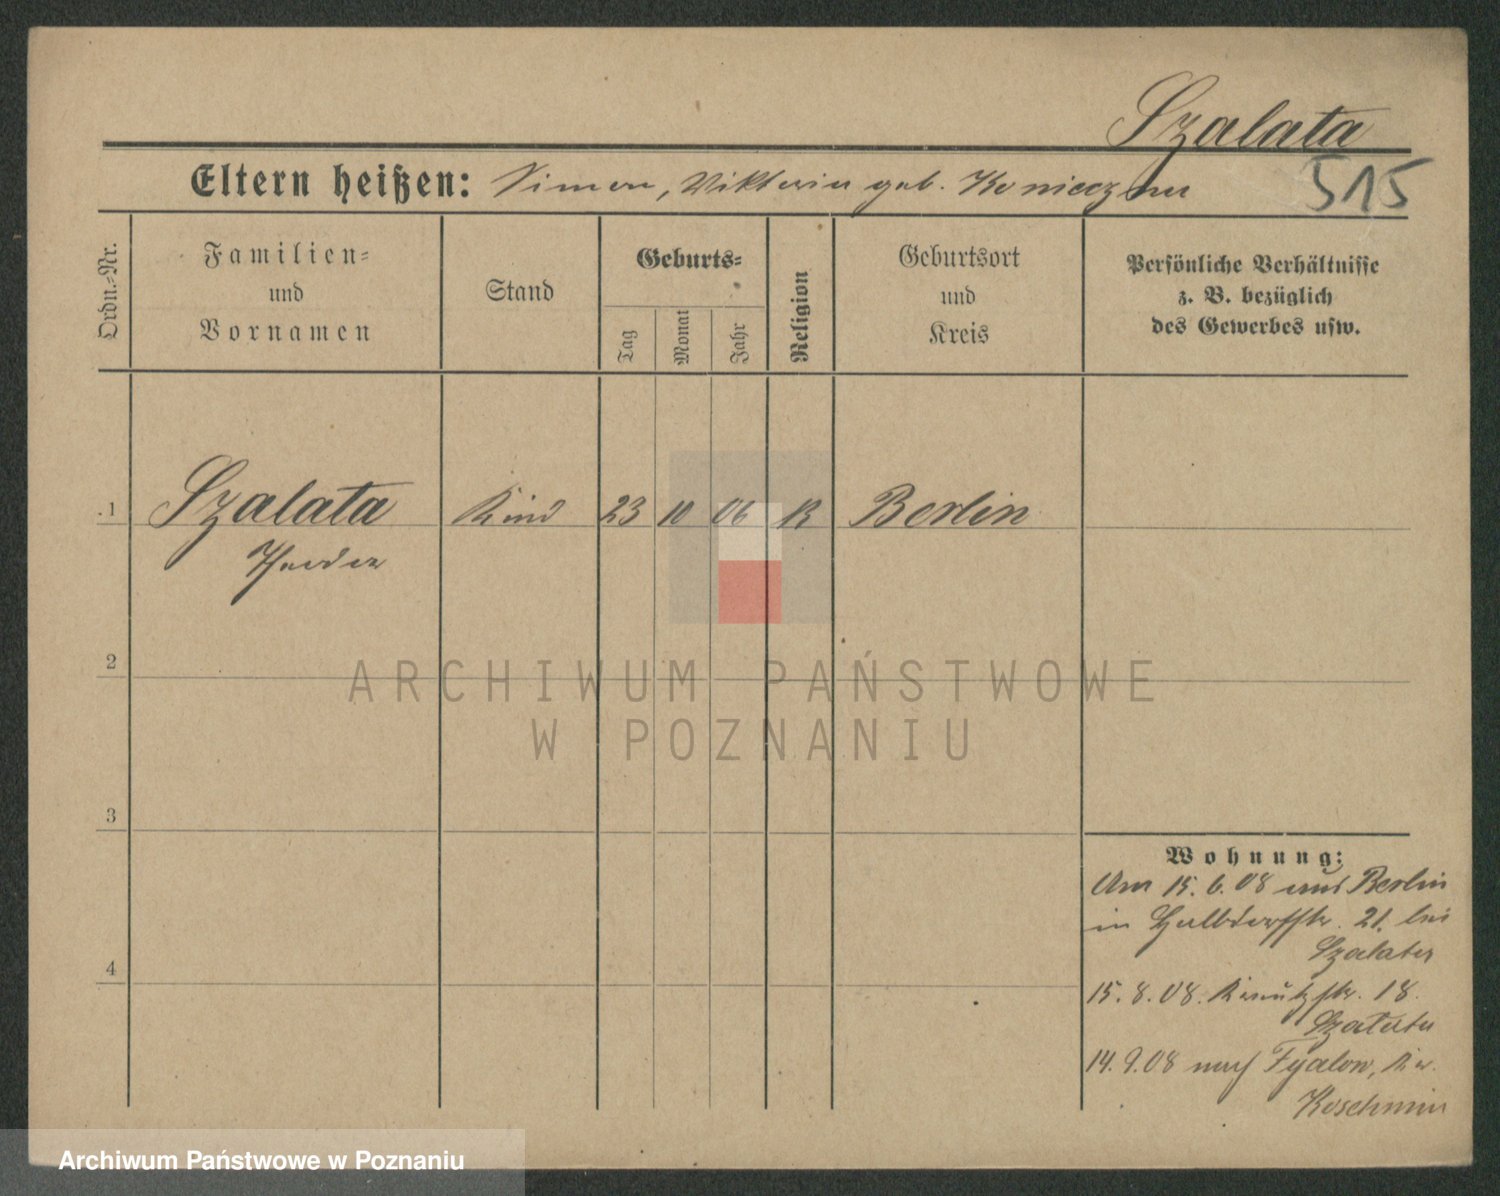 Szalata
Eltern heißen: Simon, Viktoria geb. Konieczna
515
Ordn.=Nr.
Familien=
und
Vornamen
Stand
Geburts=
Tag
Monat
Jahr
Religion
Geburtsort
und
Kreis
Persönliche Verhältnisse
z. B. bezüglich
des Gewerbes usw.
1 Szalata Kind 23 10 06 K Berlin
2
ARCHIWUM PAŃSTWOWE
W POZNANIU
3
4
Wohnung:
Am 15. 6. 08 aus Berlin
in Halbdorfstr. 21. bei
Szalata
15. 8. 08. Kreutzstr. 18.
Szalata
14. 9. 08 nach Kr.
Koschmin
Archiwum Państwowe w Poznaniu